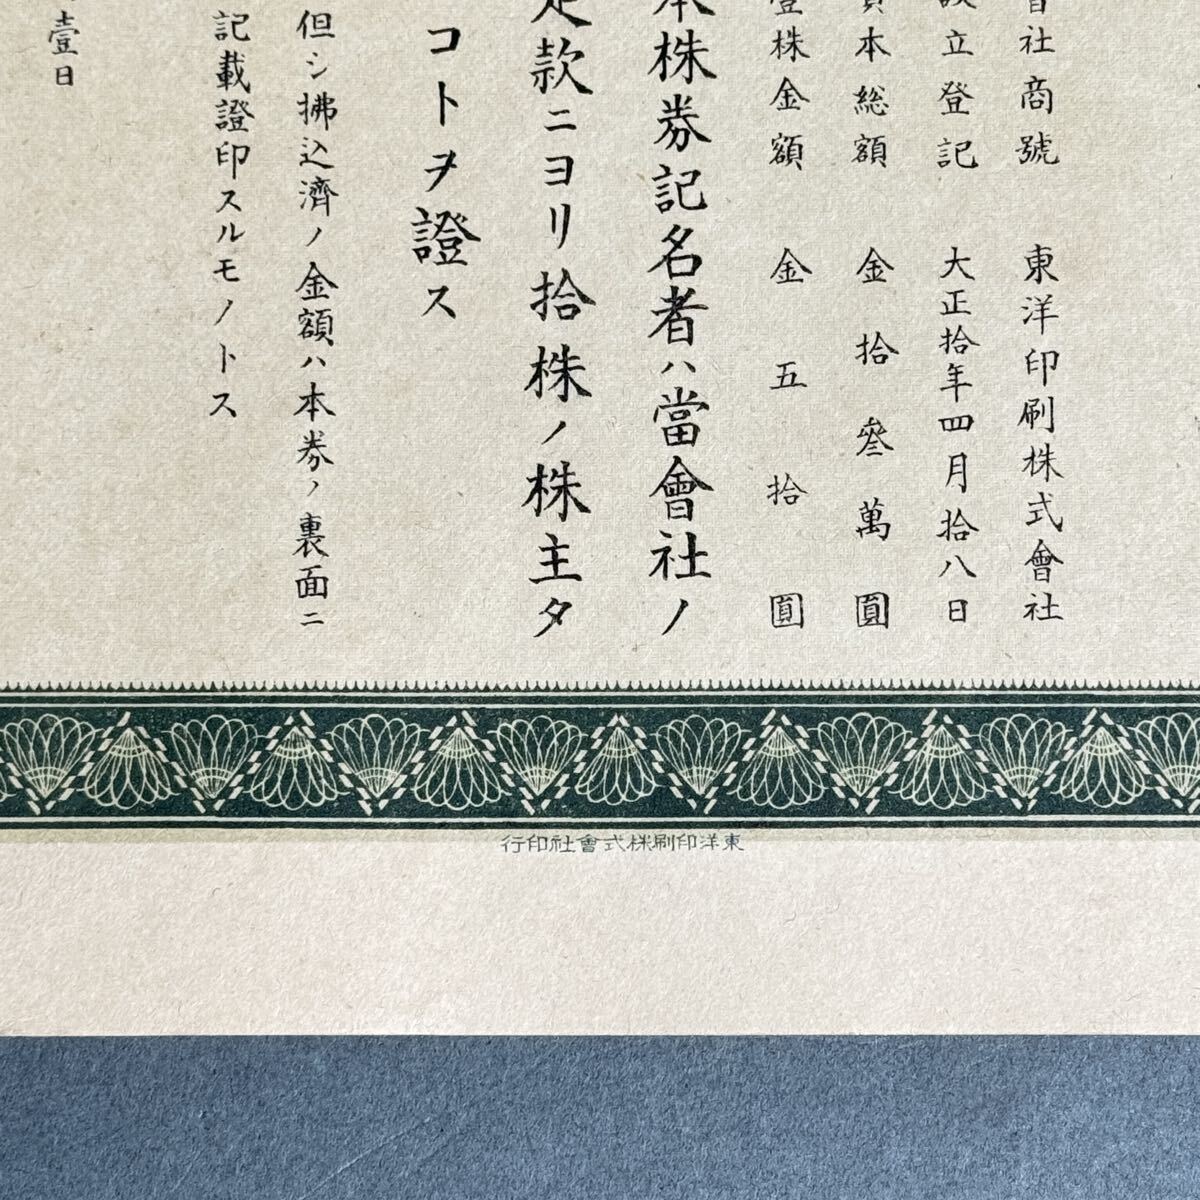 社商號 東洋印刷株式會社
立登記 大正拾年四月拾八日
本總額 金拾叄萬圓
壹株金額 金五拾圓
本株券記名者ハ當會社ノ
定款ニヨリ拾株ノ株主タ
コトヲ證ス
但シ拂込濟ノ金額ハ本券ノ裏面ニ
記載證印スルモノトス
壹日
東洋印刷株式會社印行